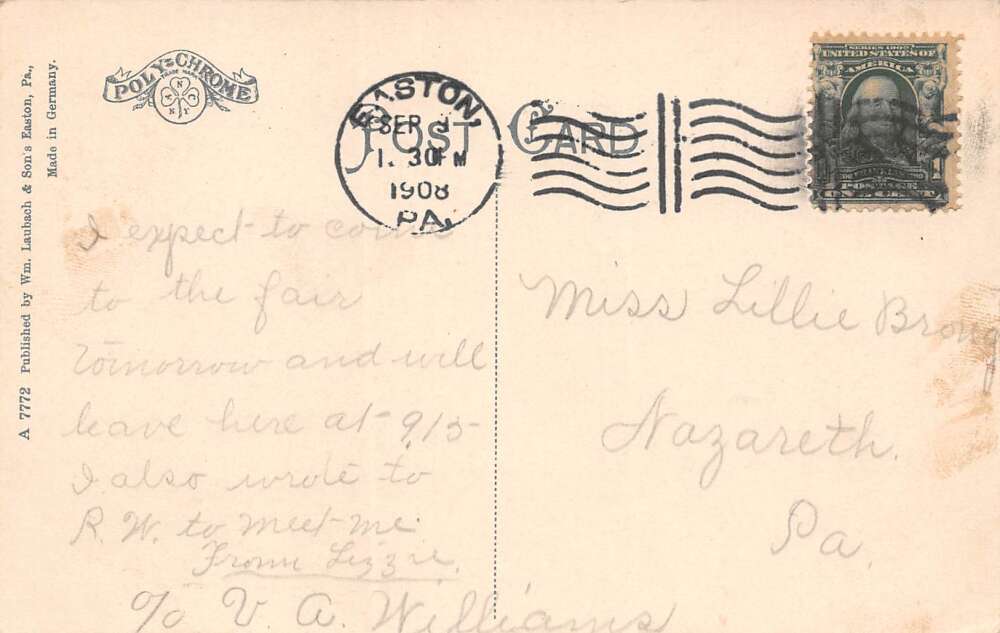 A 7772 Published by Wm. Laubach & Son's Easton, Pa.,
Made in Germany.
POLY=CHROME
TRADE MARK
A N C N Y
POST CARD
EASTON,
SEP
1. 30 PM
1908
PA.
SERIES 1902
UNITED STATES OF
AMERICA
FRANKLIN
POSTAGE
ONE CENT
I expect to come
to the fair
tomorrow and will
leave here at 9/5
I also wrote to
R. W. to meet me.
From Lizzie.
Miss Lillie Brong
Nazareth.
Pa.
c/o V. A. Williams